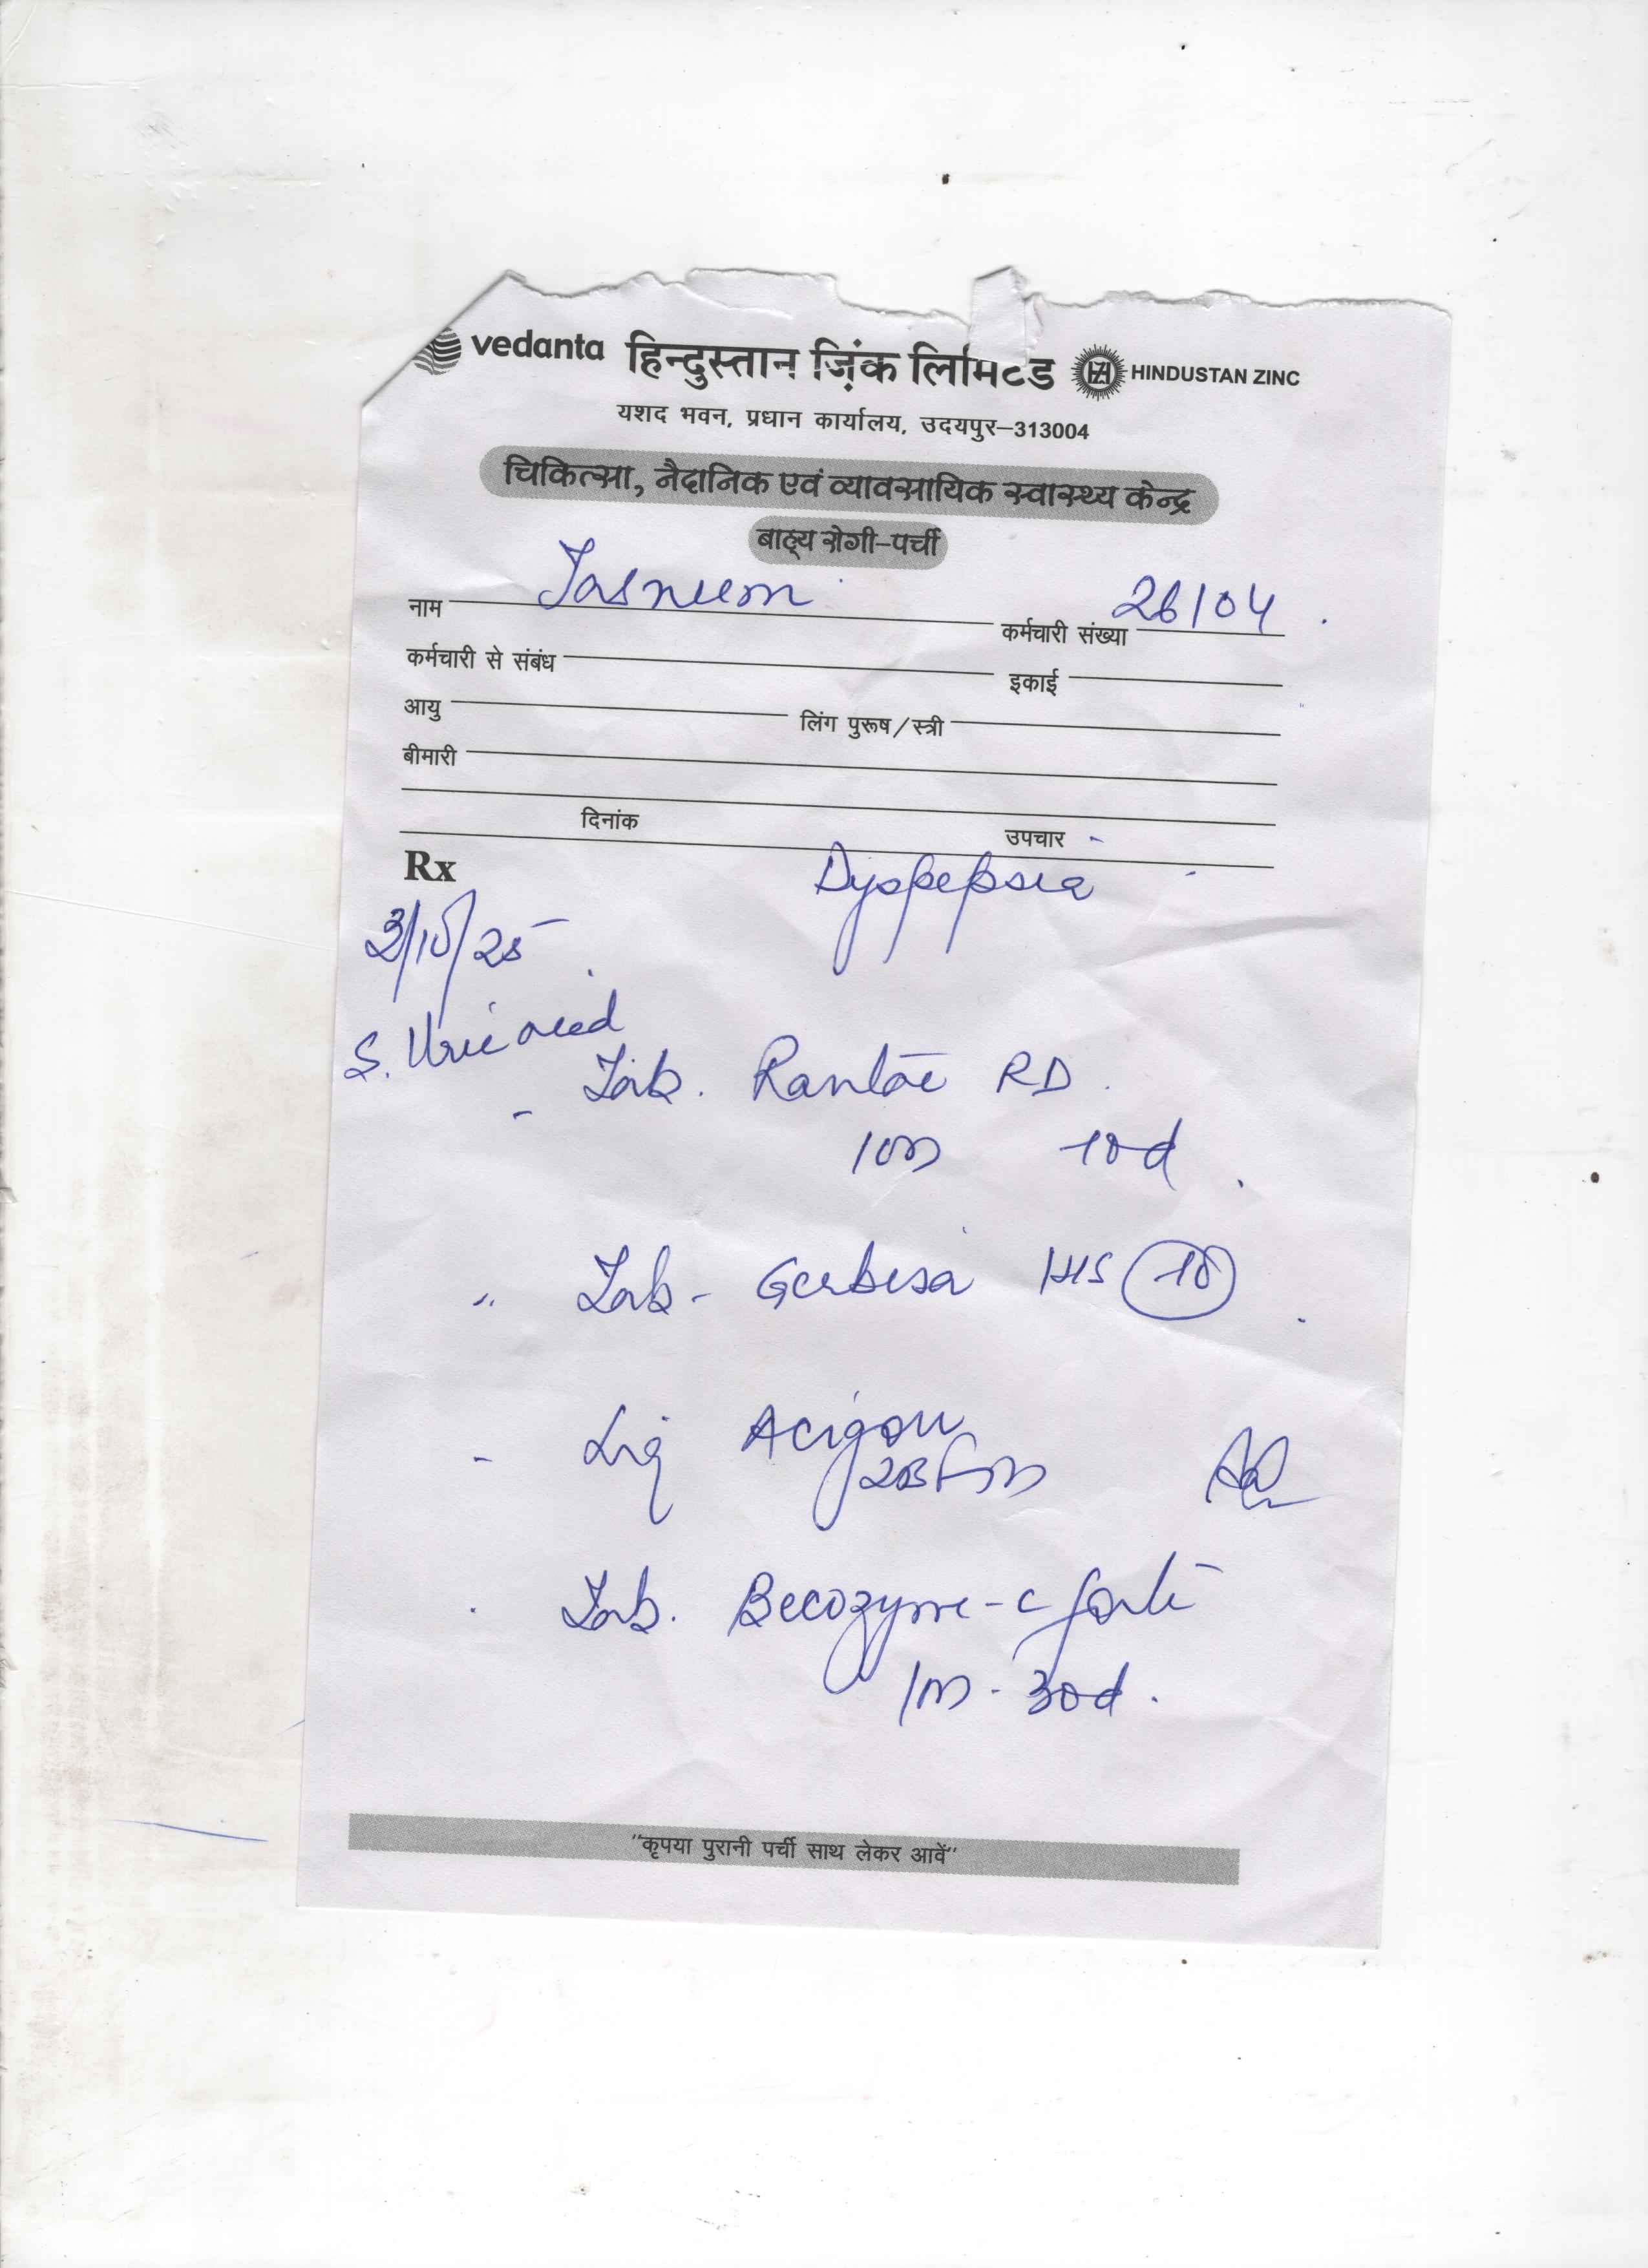 vedanta हिन्दुस्तान ज़िंक लिमिटेड HINDUSTAN ZINC
यशद भवन, प्रधान कार्यालय, उदयपुर–313004
चिकित्सा, नैदानिक एवं व्यावसायिक स्वास्थ्य केन्द्र
बाह्य रोगी-पर्ची
नाम Tasneem कर्मचारी संख्या 26/04
कर्मचारी से संबंध इकाई
आयु लिंग पुरूष/स्त्री
बीमारी
दिनांक उपचार
Rx Dyspepsia
3/10/25
S. Uric acid
Tab. Rantac RD
10d
Tab- Gerbisa 1HS 10
Liq Acigon
Tab. Becozyme-c forte
30d.
"कृपया पुरानी पर्ची साथ लेकर आवें"